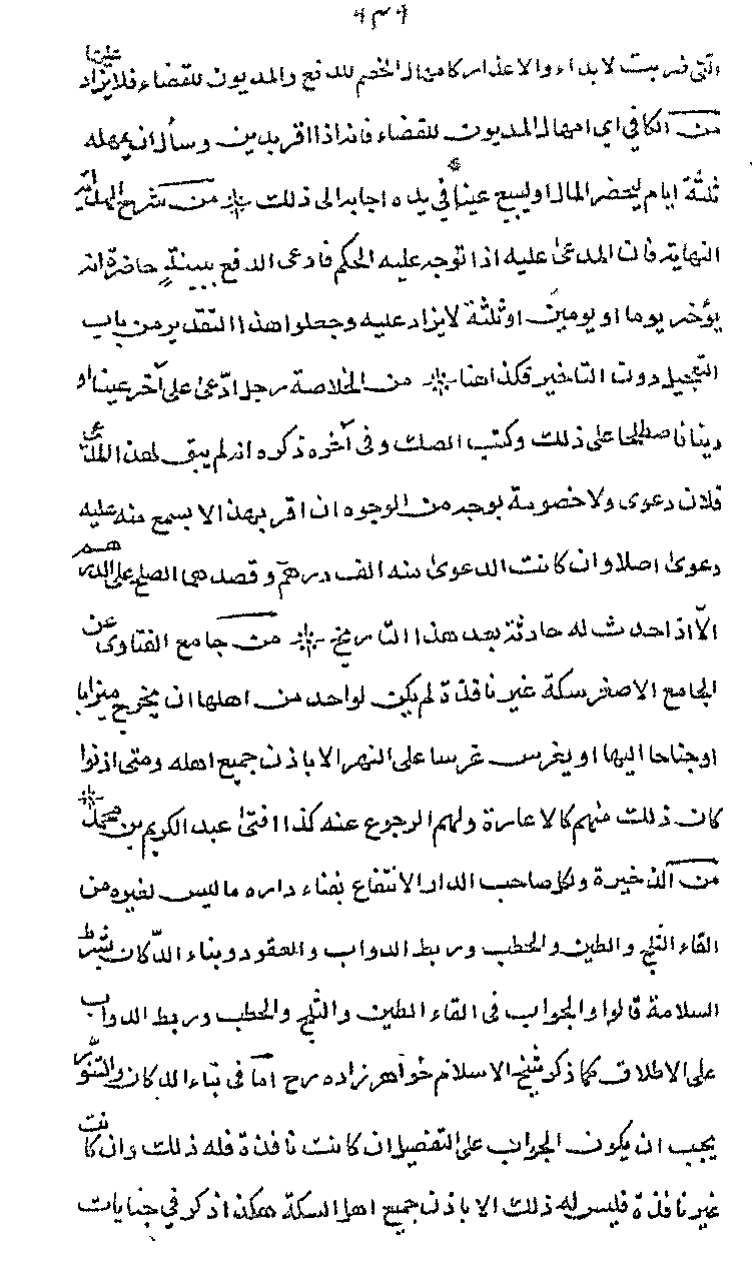 ٤٣٩
التي ضربت لابداء والاعذار كامهال الخصم للدفع والمديون للقضاء فلا يزاد عليها
من الكافي اي امهال المديون للقضاء فانه اذا اقر بدين وسأل ان يمهله
ثلثة ايام ليحضر المال او ليبيع عينا في يده اجابه الى ذلك من شرح الهداية
النهاية فان المدعى عليه اذا توجه عليه الحكم فادعى الدفع ببينة حاضرة انه
يؤخر يوما او يومين او ثلثة لا يزاد عليه وجعلوا هذا التقدير من باب
التعجيل دون التاخير فكذا هنا من الخلاصة رجل ادّعى على آخر عينا او
دينا فاصطلحا على ذلك وكتب الصك وفى آخره ذكره انه لم يبق لهذا المدّعى
فلان دعوى ولا خصومة بوجه من الوجوه ان اقر بهذا لا يسمع منه عليه
دعوى اصلا وان كانت الدعوى منه الف درهم وقصدهما الصلح على الدرهم
الّا اذا حدث له حادثة بعد هذا التاريخ من جامع الفتاوى عن
الجامع الاصغر سكة غير نافذة لم يكن لواحد من اهلها ان يخرج ميزابا
او جناحا اليها او يغرس غرسا على النهر الا باذن جميع اهله ومتى اذنوا
كان ذلك منهم كالاعارة ولهم الرجوع عنه كذا افتى عبد الكريم بن محمد
من الذخيرة ولكل صاحب الدار الانتفاع بفناء داره ما ليس لغيره من
القاء الثلج والطين والحطب وربط الدواب والعقود وبناء الدّكان بشرط
السلامة قالوا والجواب فى القاء الطين والثلج والحطب وربط الدواب
على الاطلاق كما ذكر شيخ الاسلام خواهر زاده رح اما فى بناء الدكان والتنّور
يجب ان يكون الجواب على التفصيل ان كانت نافذة فله ذلك وان كانت
غير نافذة فليس له ذلك الا باذن جميع اهل السكة هكذا ذكر في جنايات